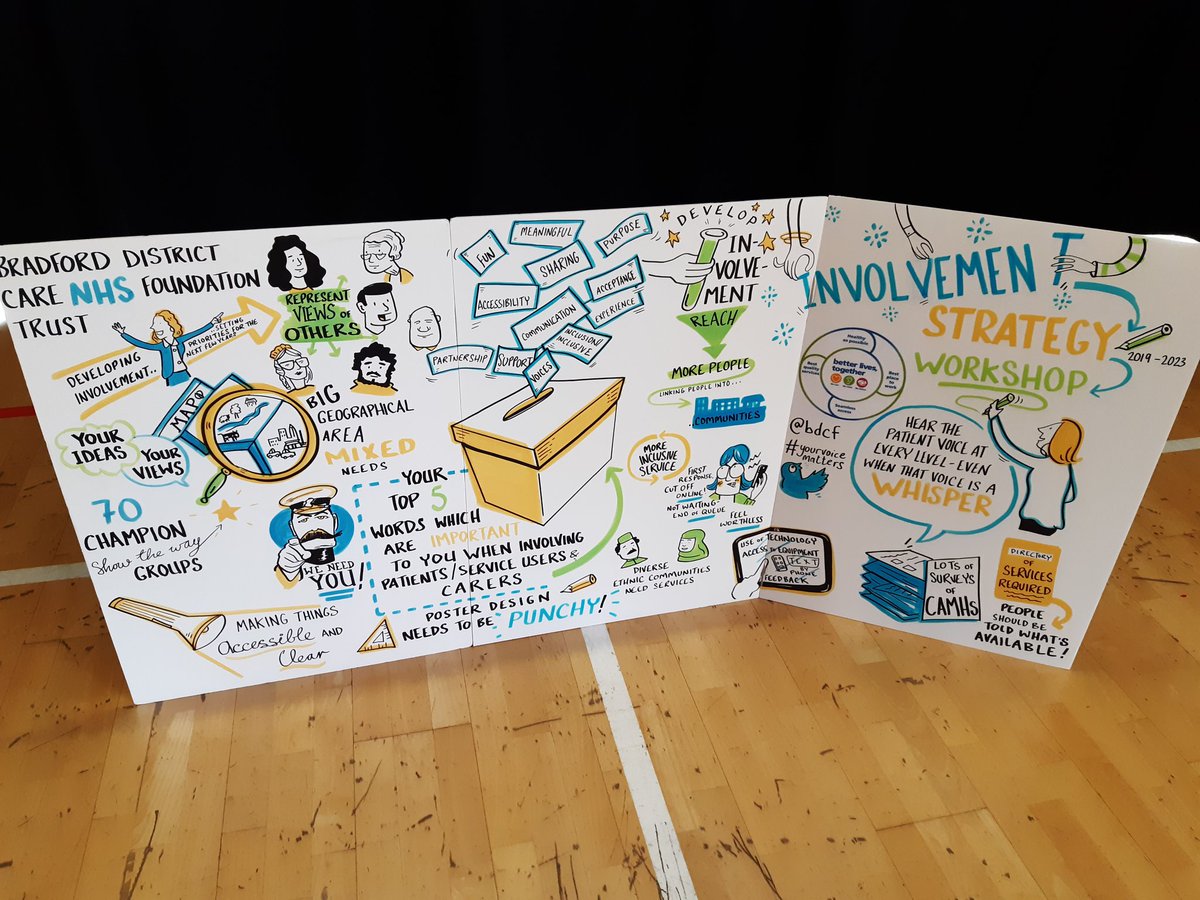 BRADFORD DISTRICT
CARE NHS FOUNDATION
TRUST
DEVELOPING
INVOLVEMENT..
..SETTING
PRIORITIES FOR THE
NEXT FEW YEARS
REPRESENT
VIEWS OF
OTHERS
YOUR
IDEAS
YOUR
VIEWS
MAP
BIG
GEOGRAPHICAL
AREA
MIXED
NEEDS
70
CHAMPION
Show the way
GROUPS
WE NEED
YOU!
MAKING THINGS
Accessible AND
Clear
FUN
MEANINGFUL
PURPOSE
SHARING
ACCESSIBILITY
ACCEPTANCE
EXPERIENCE
COMMUNICATION
INCLUSION/
INCLUSIVE
PARTNERSHIP
SUPPORT
VOICES
YOUR
TOP 5
WORDS WHICH
ARE IMPORTANT
TO YOU WHEN INVOLVING
PATIENTS/SERVICE USERS &
CARERS
POSTER DESIGN
NEEDS TO BE PUNCHY!
DEVELOP
IN-
VOLVE-
MENT
REACH
MORE PEOPLE
LINKING PEOPLE INTO...
..COMMUNITIES
MORE
INCLUSIVE
SERVICE
FIRST
RESPONSE,
CUT OFF
ONLINE!
NOT WAITING-
END OF QUEUE
FEEL
WORTHLESS
DIVERSE
ETHNIC COMMUNITIES
NEED SERVICES
USE OF TECHNOLOGY
ACCESS TO EQUIPMENT
TEXT
BY
PHONE
FEEDBACK
INVOLVEMENT
STRATEGY
WORKSHOP
2019-2023
Healthy
as possible
Best
quality
services
better lives,
together
Best
place to
work
Seamless
access
@bdcf
#yourvoice
matters
HEAR THE
PATIENT VOICE AT
EVERY LEVEL-EVEN
WHEN THAT VOICE IS A
WHISPER
LOTS OF
SURVEYS
OF
CAMHS
DIRECTORY
OF
SERVICES
REQUIRED
PEOPLE
SHOULD BE
TOLD WHAT'S
AVAILABLE!